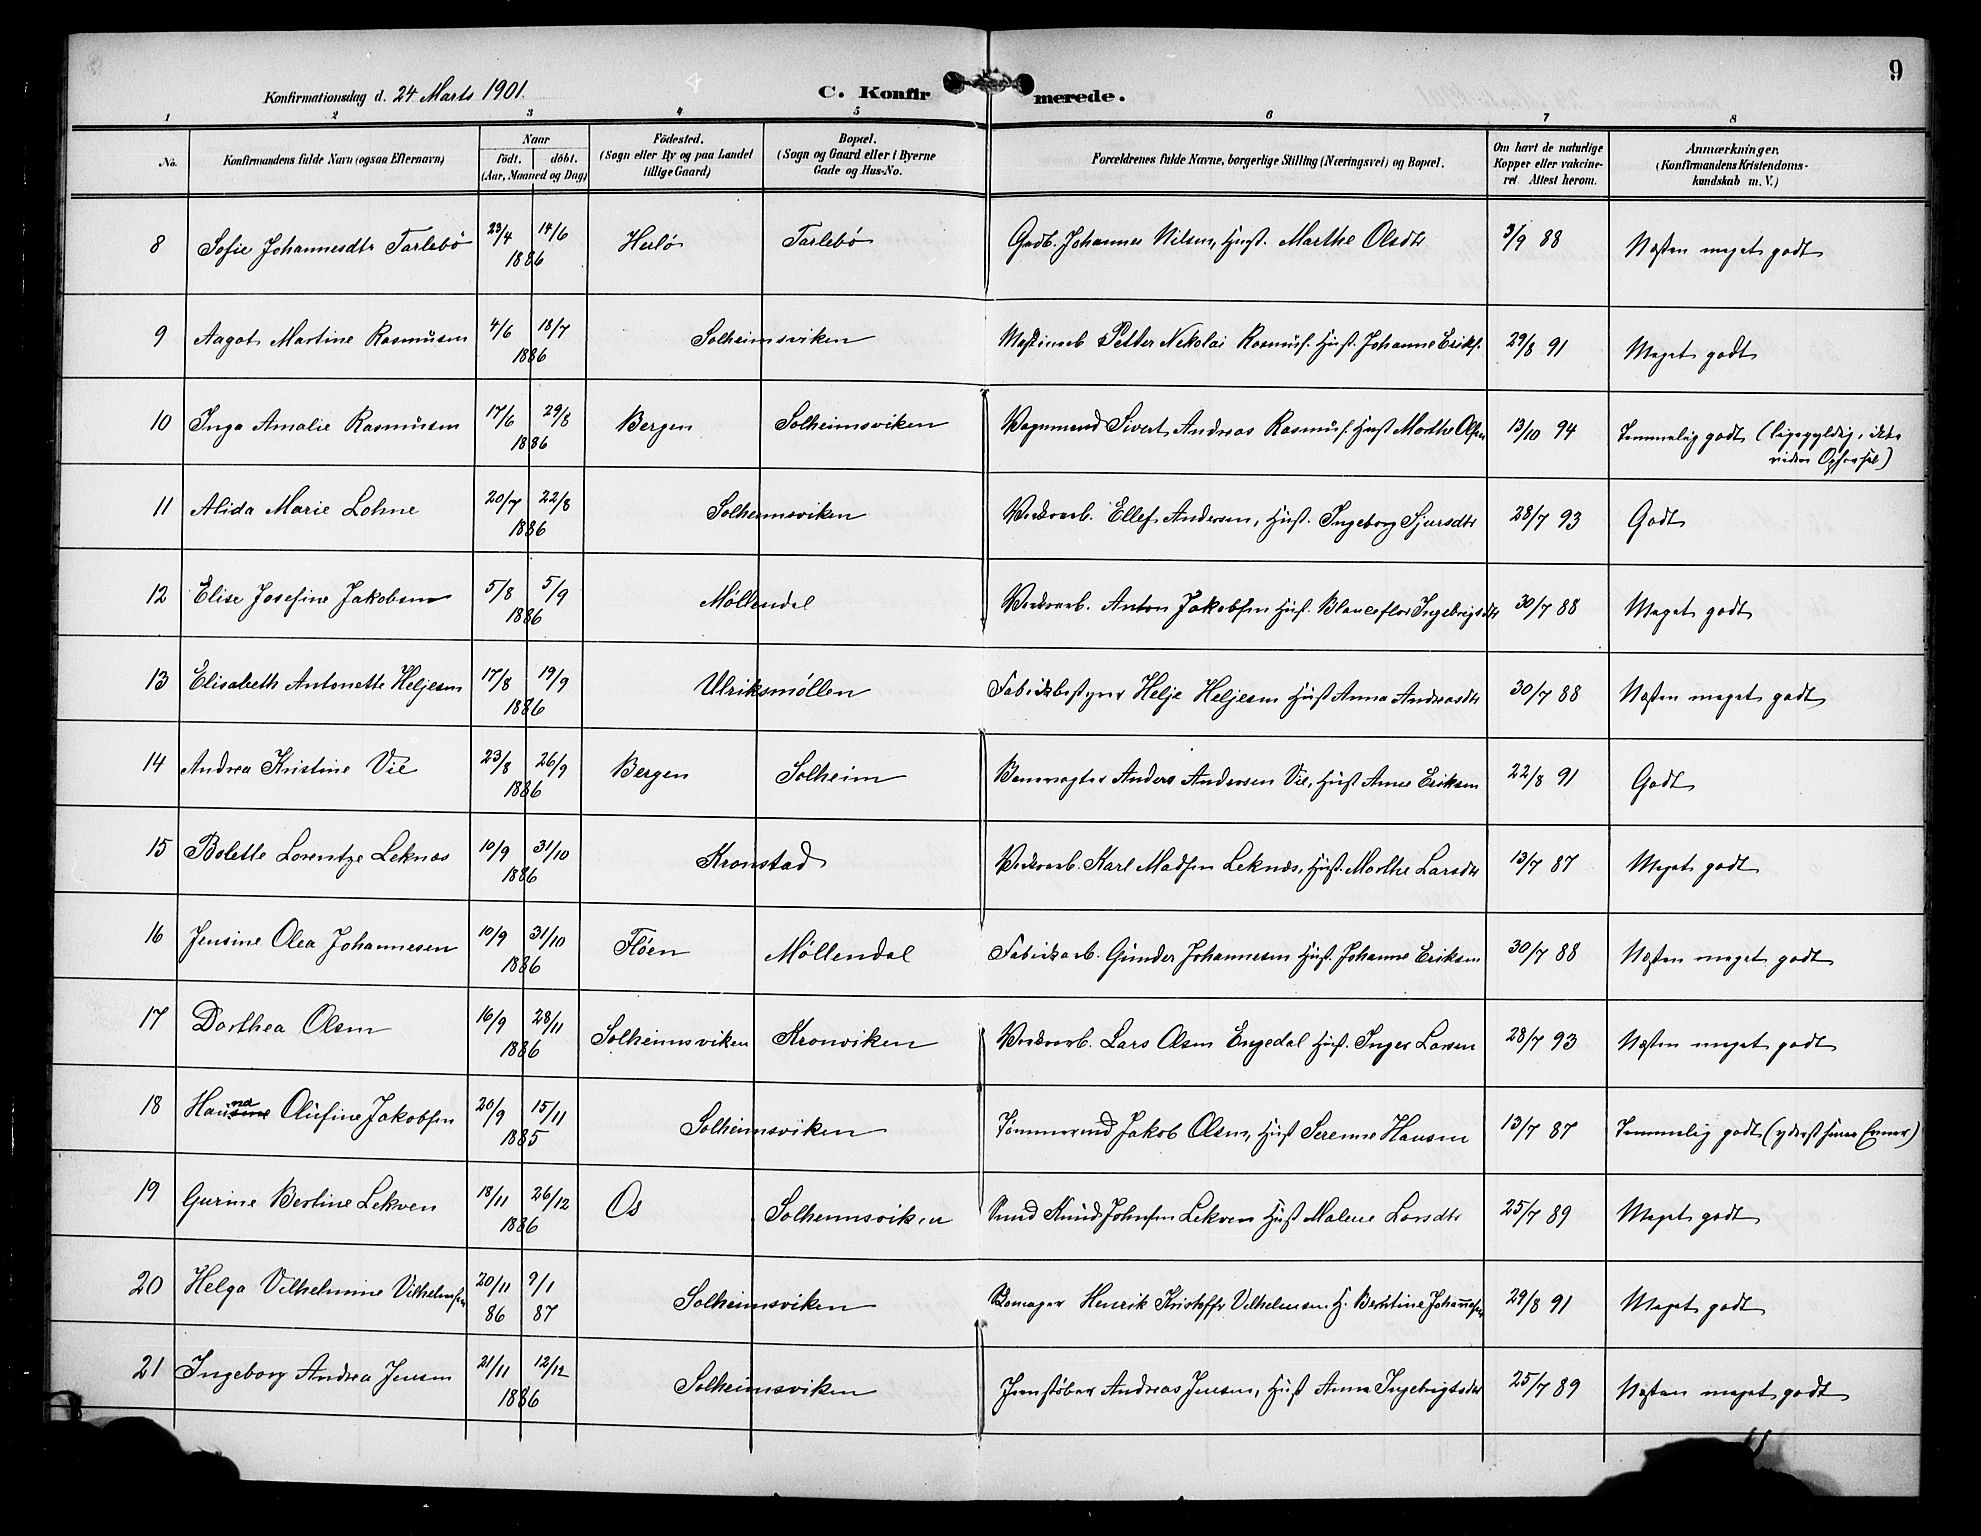 9
Konfirmationsdag d. 24 Marts 1901.
C. Konfirmerede.
1 2 3 4 5 6 7 8
No. | Konfirmandens fulde Navn (ogsaa Efternavn) | Naar födt. döbt. (Aar, Maaned og Dag) | Födested. (Sogn eller By og paa Landet tillige Gaard) | Bopæl. (Sogn og Gaard eller i Byerne Gade og Hus-No. | Forældrenes fulde Navne, borgerlige Stilling (Næringsvei) og Bopæl. | Om havt de naturlige Kopper eller vakcineret. Attest herom. | Anmærkninger. (Konfirmandens Kristendomskundskab m. V.)
8 Sofie Johannesdtr Tarlebö 23/4 14/6 1886 Herlö Tarlebö Gadb. Johannes Nilsen, Hust. Marthe Olsdtr 3/9 88 Næsten meget godt
9 Aagot Martine Rasmussen 4/6 18/7 1886 Solheimsviken Petter Nikolai Rasmus. Hust. Johanne Eriks. 29/8 91 Meget godt
10 Inga Amalie Rasmussen 17/6 29/8 1886 Bergen Solheimsviken Vognmand Sivert Andreas Rasmus. Hust Marthe Olsen 13/10 94 Temmelig godt (ligegyldig, ikke
11 Alida Marie Lohne 20/7 22/8 1886 Solheimsviken Verksarb. Ellef Andersen, Hust. Ingeborg Sjursdtr 28/7 93 Godt
12 Elise Josefine Jakobsen 5/8 5/9 1886 Möllendal Verksarb. Anton Jakobsen Hus. Blanceflor Ingebrigtsdtr 30/7 88 Meget godt
13 Elisabeth Antonette Heljesen 17/8 19/9 1886 Ulriksmöllen Fabrikbestyrer Helje Heljesen Hust Anna Andreasdtr 30/7 88 Næsten meget godt
14 Andrea Kristine Vie 23/8 26/9 1886 Bergen Solheim Banevogter Anders Andersen Vie, Hust Anne Eriksen 22/8 91 Godt
15 Bolette Lorentze Leknes 10/9 31/10 1886 Kronstad Verksarb. Karl Madsen Leknes, Hust. Marthe Larsdtr 13/7 87 Meget godt
16 Jensine Olea Johannesen 10/9 31/10 1886 Flöen Möllendal Fabriksarb. Gunder Johannesen Hust. Johanne Eriksen 30/7 88 Næsten meget godt
17 Dorthea Olsen 16/9 28/11 1886 Solheimsviken Kronviken Verksarb. Lars Olsen Engedal Hust. Inger Larsen 28/7 93 Næsten meget godt
18 Hanna Olufine Jakobsen 20/9 15/11 1885 Solheimsviken Tömmermd Jakob Olsen, Hust Serenne Hansen 13/7 87 Temmelig godt (yderst smaa Evner)
19 Gurine Bertine Lekven 18/11 26/12 1886 Os Solheimsviken Knud Johnsen Lekven Hust Malene Larsdtr 25/7 89 Meget godt
20 Helga Vilhelmine Vilhelmsen 20/11 86 9/1 87 Solheimsviken Henrik Kristoffr Vilhelmsen H. Berntine Johannesen 29/8 91 Meget godt
21 Ingeborg Andrea Jensen 21/11 12/12 1886 Solheimsviken Jernstöber Andreas Jensen, Hust Anna Ingebrigtsdtr 25/7 89 Næsten meget godt